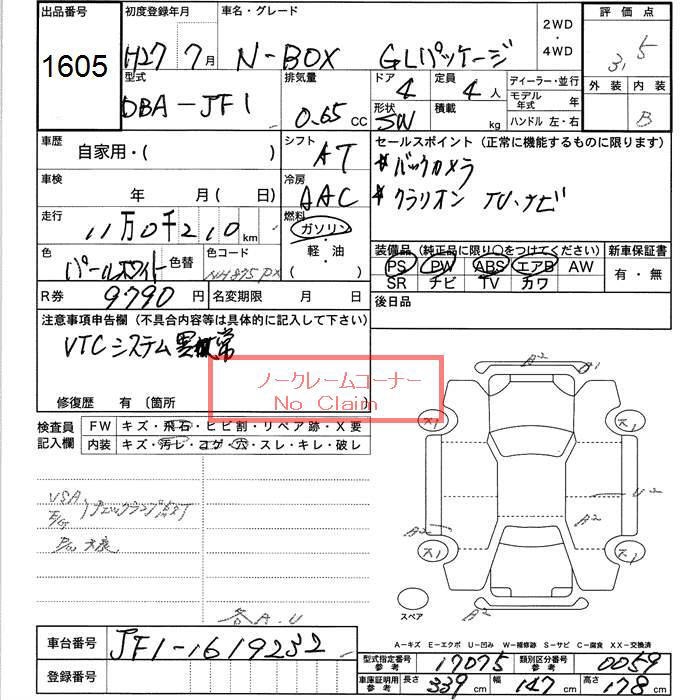 出品番号 初度登録年月 車名・グレード 2WD・4WD 評価点
1605 H27 7月 N-BOX GLパッケージ 3.5
型式 排気量 ドア 定員 ディーラー・並行 外装 内装
DBA-JF1 0.65 CC 4 4人 モデル年式 年 B
形状 積載 ハンドル 左・右
SW kg
車歴 シフト セールスポイント (正常に機能するものに限ります)
自家用・( ) AT バックカメラ
車検 冷房 クラリオン TV・ナビ
年 月(日) AAC
走行 燃料
11万0千210km ガソリン・軽・油( )
色 色替 色コード 装備品 (純正品に限り○をつけてください) 新車保証書
パールホワイト NH875PX PS PW ABS エアB AW 有・無
SR チビ TV カワ
R券 9790円 名変期限 月 日 後日品
注意事項申告欄 (不具合内容等は具体的に記入して下さい)
VTCシステム異常
ノークレームコーナー
No Claim
修復歴 有 〔箇所 〕
検査員記入欄 FW キズ・飛石・ヒビ割・リペア跡・X要
内装 キズ・汚レ・コゲ・穴・スレ・キレ・破レ
A2 B1
ス1 ス1
U2
A2 B2
ス1 ス1
スペア A2
各A.U
A-キズ E-エクボ U-凹み W-補修跡 S-サビ C-腐食 XX-交換済
車台番号 JF1-1619232
型式指定番号 参考 17075 類別区分番号 参考 0059
登録番号
車庫証明用 参考 長さ 339cm 幅 147cm 高さ 178cm